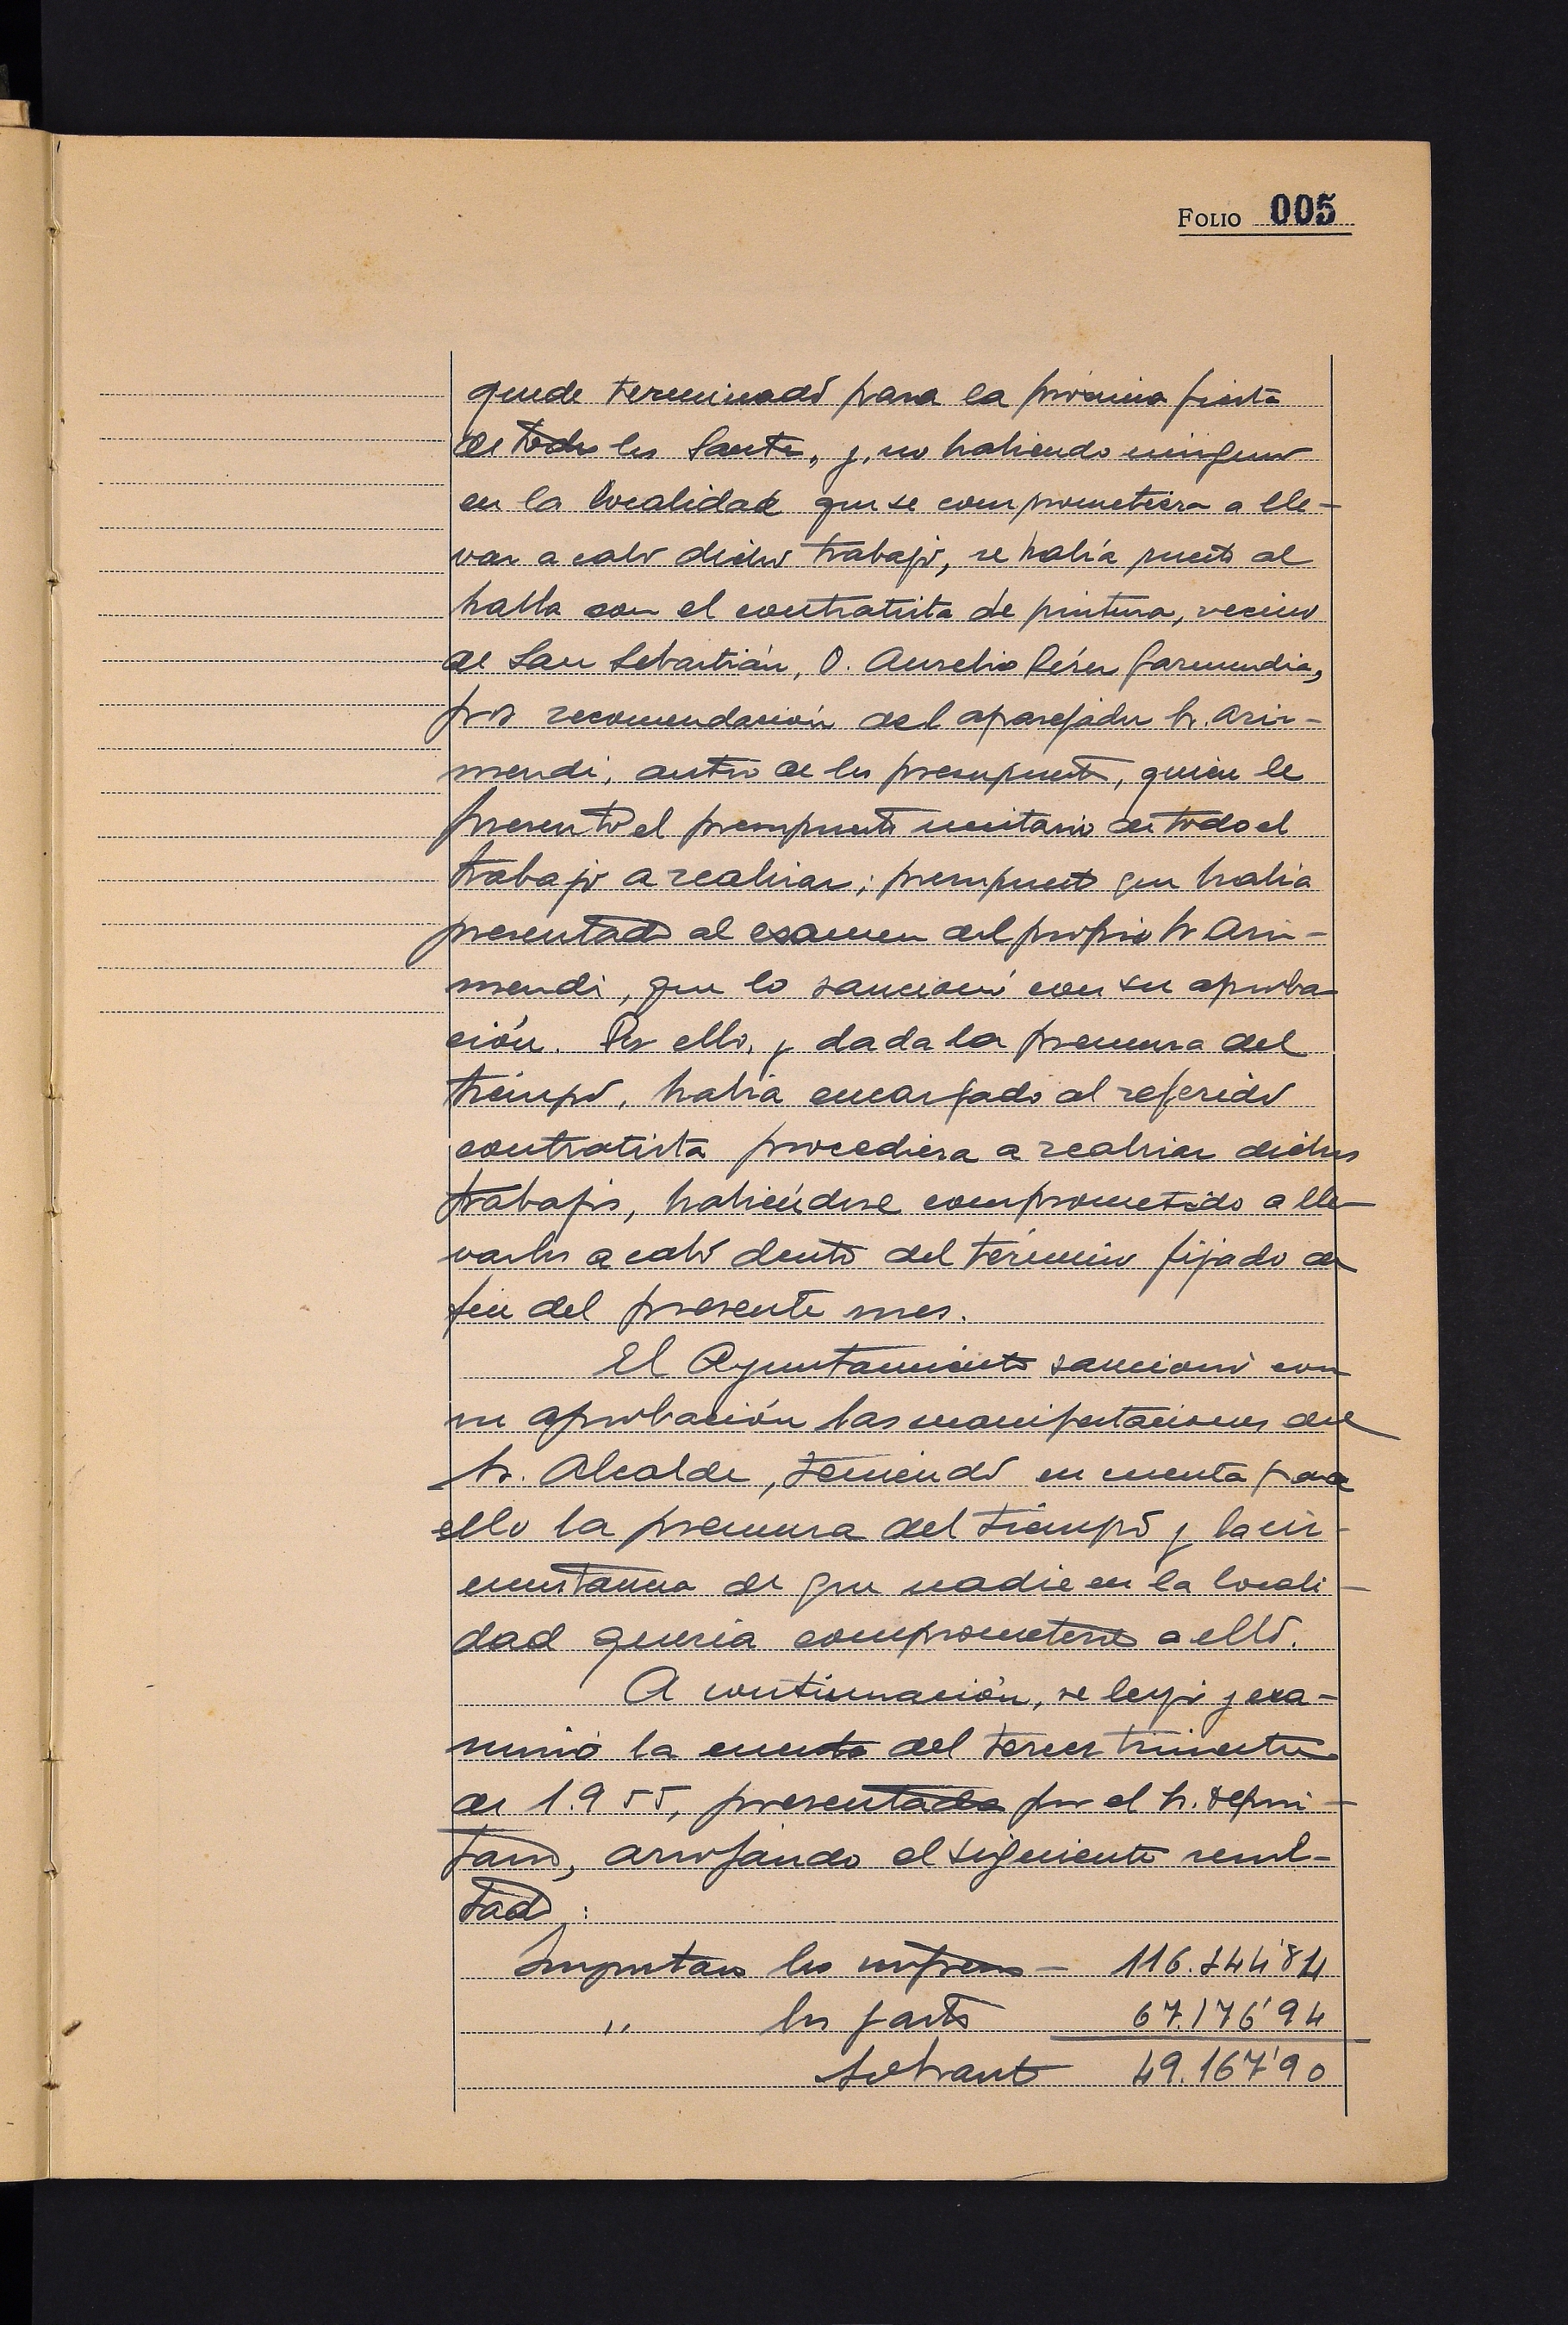 FOLIO 005
quede terminado para la próxima fiesta
de todos los Santos, y, no habiendo ninguno
en la localidad que se comprometiera a lle-
var a cabo dicho trabajo, se había puesto al
habla con el contratista de pintura, vecino
de San Sebastián, D. Aurelio Pérez Garmendia,
por recomendación del aparejador Sr. Aris-
mendi, autor de los presupuestos, quien le
presentó el presupuesto unitario de todo el
trabajo a realizar; presupuesto que había
presentado al examen del propio Sr Aris-
mendi, que lo sancionó con su aproba-
ción. Por ello, y dada la premura del
tiempo, había encargado al referido
contratista procediera a realizar dichos
trabajos, habiéndose comprometido a lle-
varlos a cabo dentro del término fijado de
fin del presente mes.
El Ayuntamiento sancionó con
su aprobación las manifestaciones del
Sr. Alcalde, teniendo en cuenta para
ello la premura del tiempo y la cir-
cunstancia de que nadie en la locali-
dad quería comprometerse a ello.
A continuación, se leyó y exa-
minó la cuenta del tercer trimestre
de 1.955, presentada por el Sr. deposi-
tario, arrojando el siguiente resul-
tado:
Importan los ingresos - 116.344'84
" los gastos 67.176'94
Sobrante 49.167'90